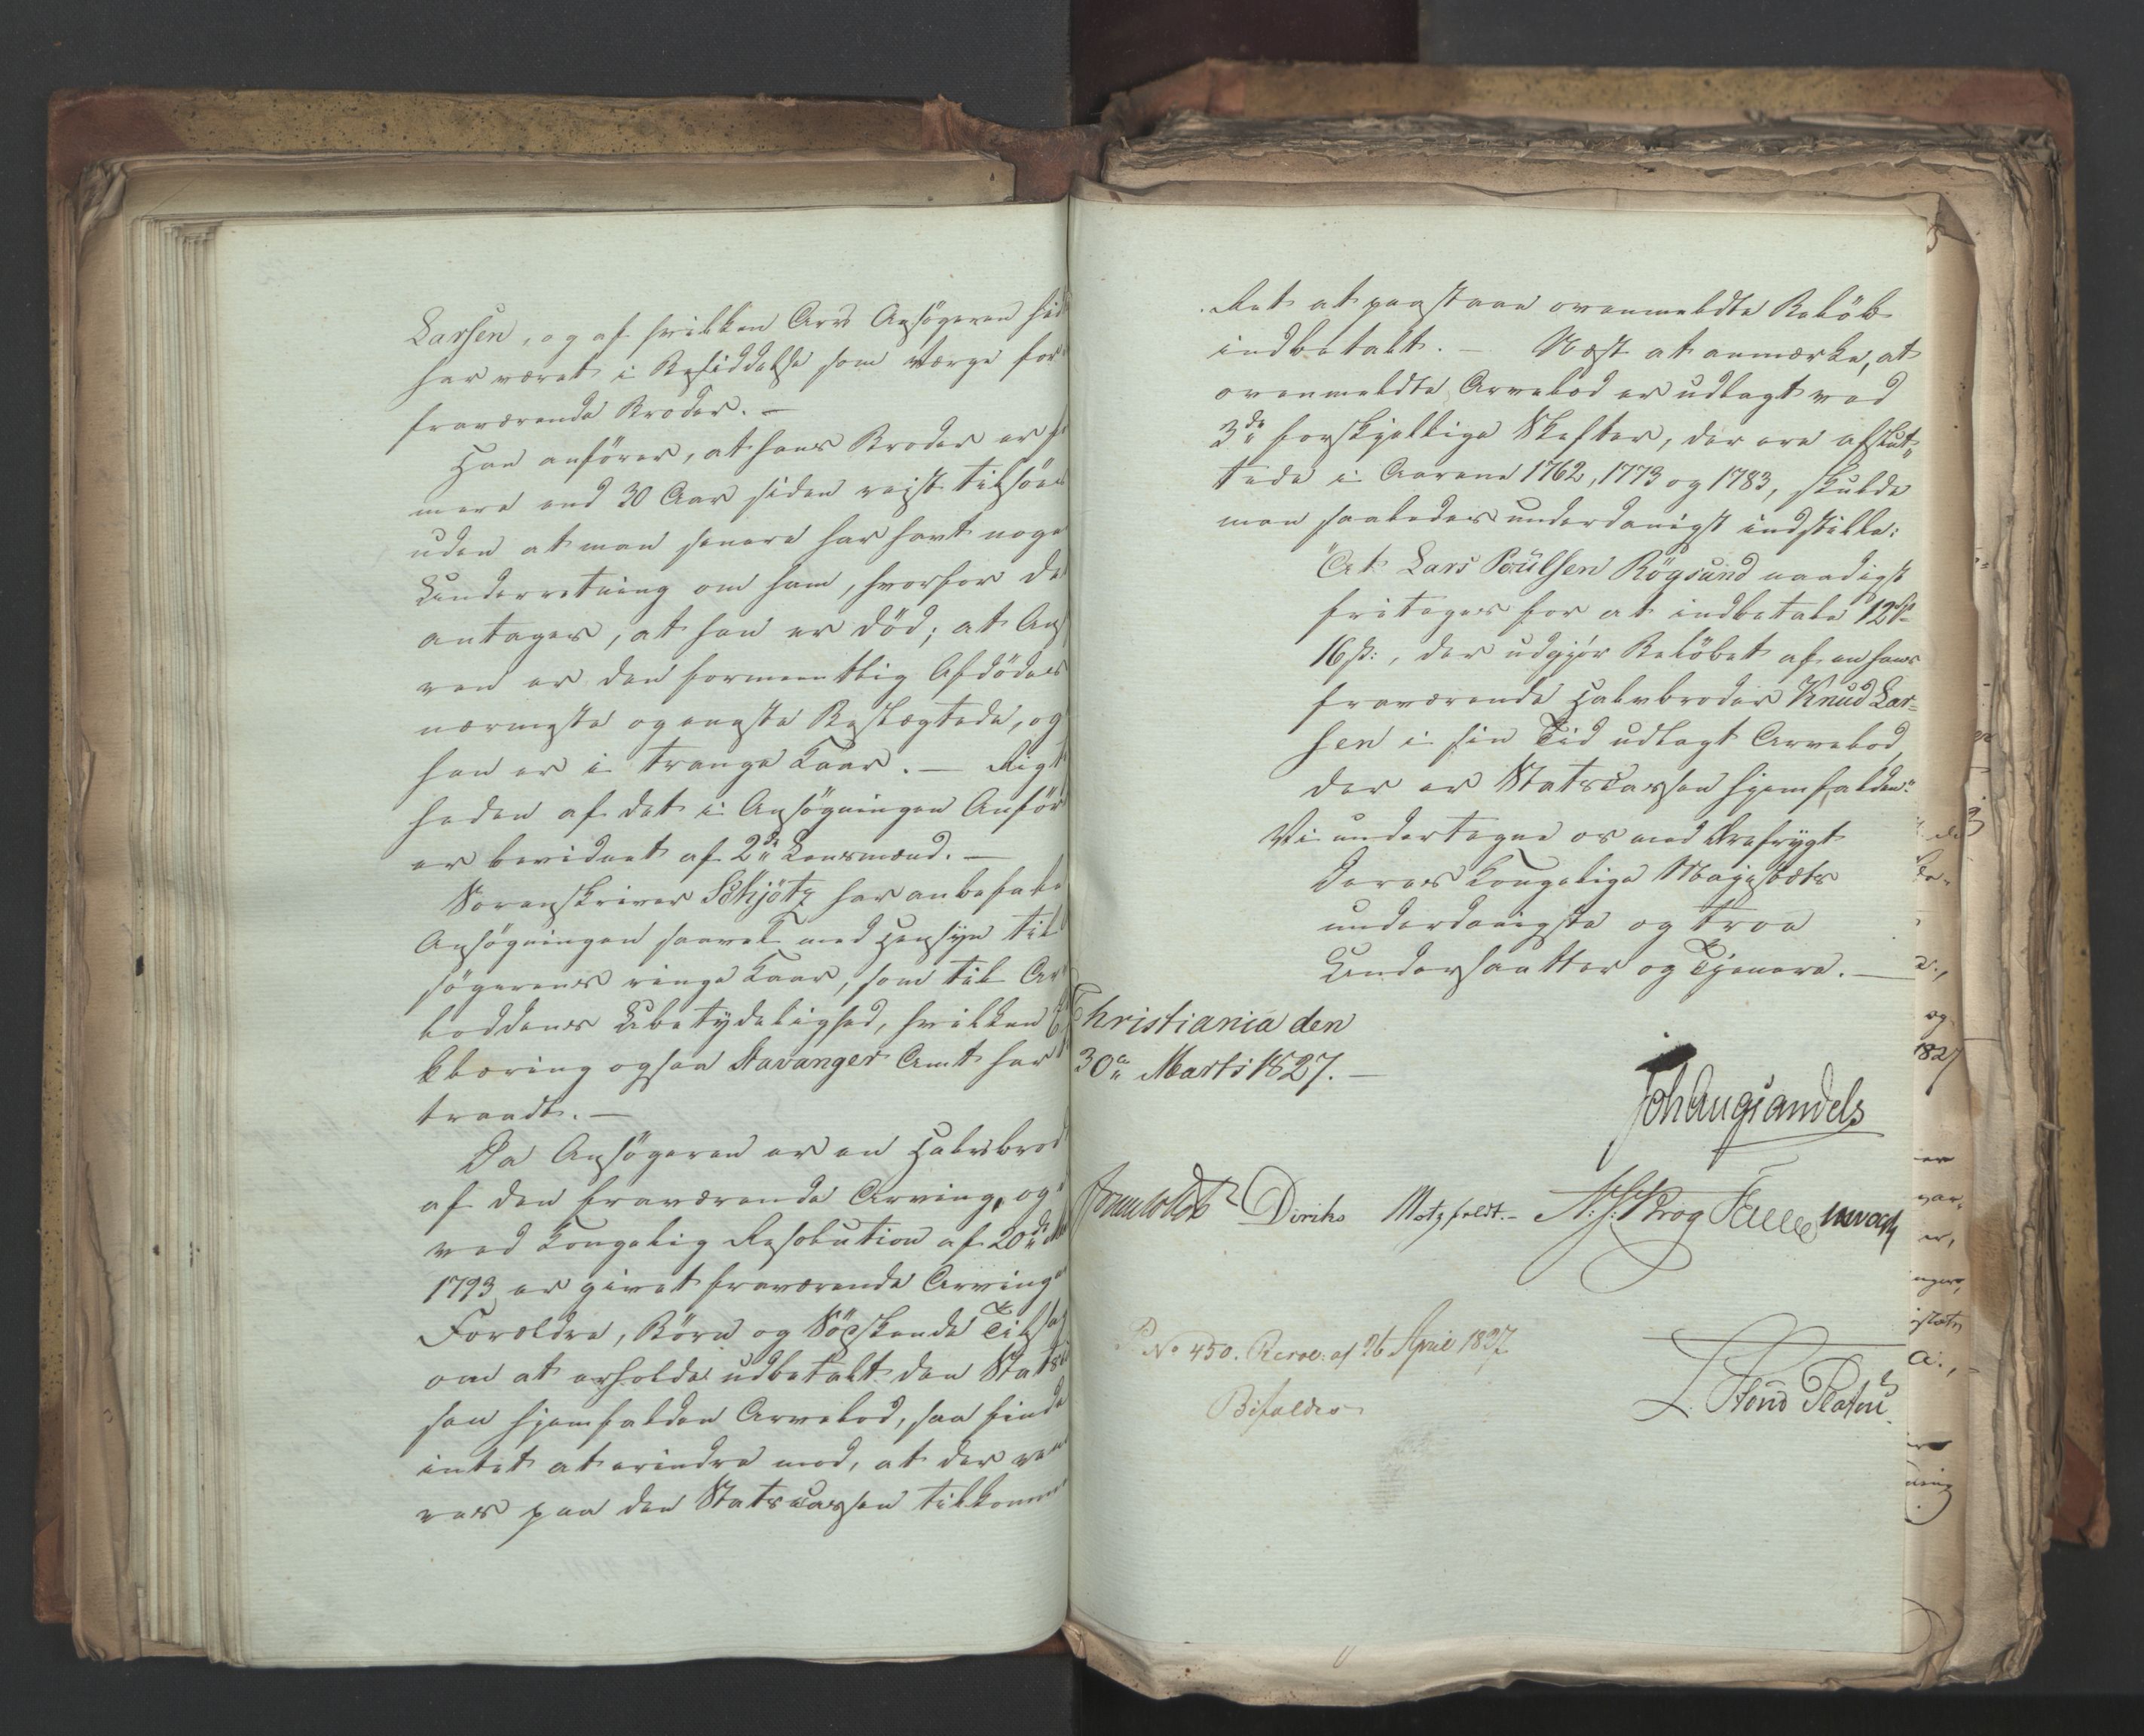 Larsen, og af hvilken Arv Ansøgeren
har været i Besiddelse som Værge for
fraværende Broder. —
Han anfører, at hans Broder er
mere end 30 Aar siden reist
uden at man senere har havt
Underretning om ham, hvorfor
antages, at han er død; at
ren er den formeentlig Afdødes
nærmeste og eneste Beslægtede, og
han er i trange Kaar. —
heden af det i Ansøgningen
er bevidnet af 2de Lensmænd. —
Sorenskriver Schjötz har
Ansøgningen saavel med Hensyn til
søgerens ringe Kaar, som til
loddens Ubetydelighed, hvilken
klæring ogsaa Stavanger Amt har
traadt. —
Da Ansøgeren er en
af den fraværende Arving, og
ved Kongelig Resolution af 20de
1793 er givet fraværende
Forældre, Børn og Södskende
om at erholde udbetalt den
sen hjemfalden Arvelod, saa
intet at erindre mod, at der
res paa den Statscassen
Ret at paastaae ovenmeldte Beløb
indbetalt. — Næst at anmærke, at
ovenmeldte Arvelod er udlagt ved
3de forskjellige Skifter, der ere afslut-
tede i Aarene 1762, 1773 og 1783, skulde
man saaledes underdanigst indstille:
"At Lars Poulsen Rögsund naadigst
fritages for at indbetale 12 Spd
16 ß:, der udgjør Beløbet af en hans
fraværende Halvbroder Knud Lar=
sen i sin Tid udlagt Arvelod,
der er Statscassen hjemfalden."
Vi undertegne os med Ærefrygt
Deres Kongelige Majestæts
underdanigste og troe
Undersaatter og Tjenere. —
Christiania den
30te Marts 1827. —
Joh Aug Sandels
Diriks Motzfeldt. — Krog
No 450. Resol: af 26 April 1827
Bifaldes
L. Stoud Platou